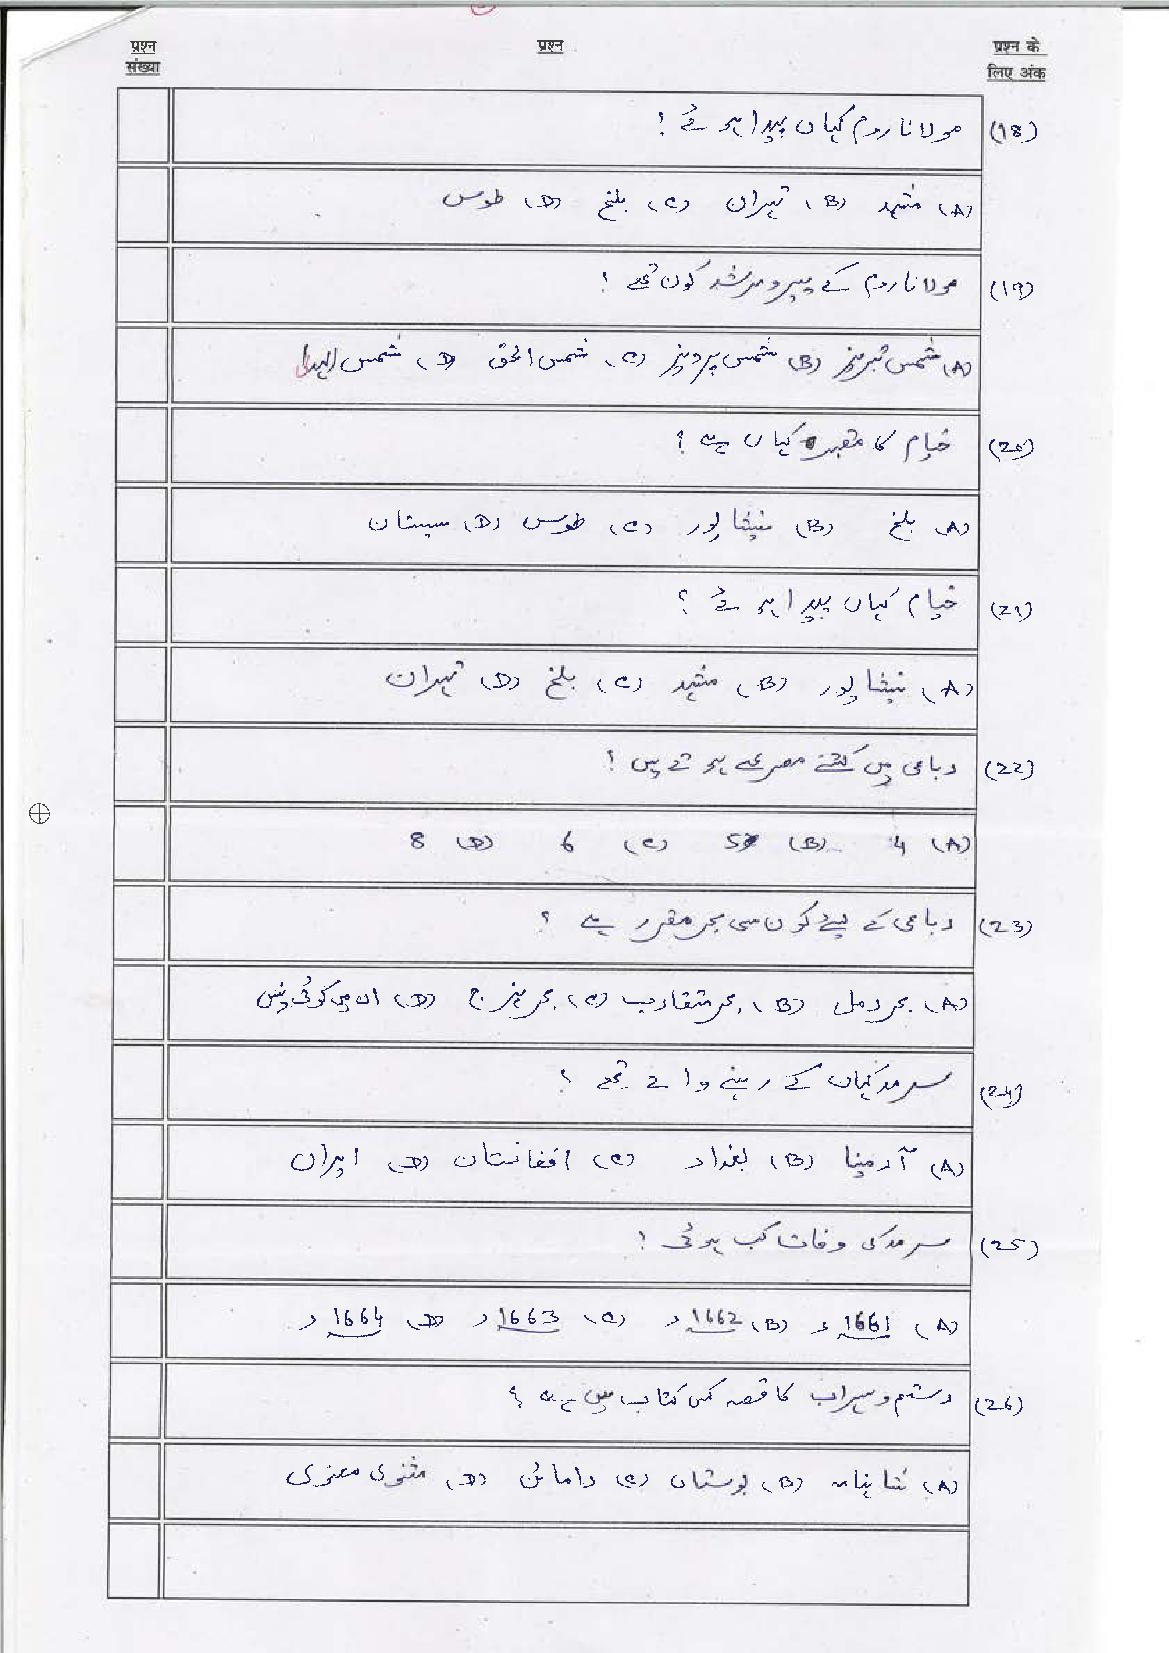 प्रश्न संख्या
प्रश्न
प्रश्न के लिए अंक
(18) مولانا روم کہاں پیدا ہوئے ؟
(A) مشہد (B) تہران (C) بلخ (D) طوس
(19) مولانا روم کے پیر و مرشد کون تھے ؟
(A) شمس تبریز (B) شمس پرویز (C) شمس الحق (D) شمس الہدیٰ
(20) خیام کا مقبرہ کہاں ہے ؟
(A) بلخ (B) نیشاپور (C) طوس (D) سیستان
(21) خیام کہاں پیدا ہوئے ؟
(A) نیشاپور (B) مشہد (C) بلخ (D) تہران
(22) رباعی میں کتنے مصرعے ہوتے ہیں ؟
(A) 4 (B) 5 (C) 6 (D) 8
(23) رباعی کے لیے کون سی بحر مقرر ہے ؟
(A) بحر رمل (B) بحر متقارب (C) بحر ہزج (D) ان میں کوئی نہیں
(24) سرمد کہاں کے رہنے والے تھے ؟
(A) آرمینا (B) بغداد (C) افغانستان (D) ایران
(25) سرمد کی وفات کب ہوئی ؟
(A) 1661ء (B) 1662ء (C) 1663ء (D) 1664ء
(26) رستم و سہراب کا قصہ کس کتاب میں ہے ؟
(A) شاہنامہ (B) بوستاں (C) رامائن (D) مثنوی معنوی